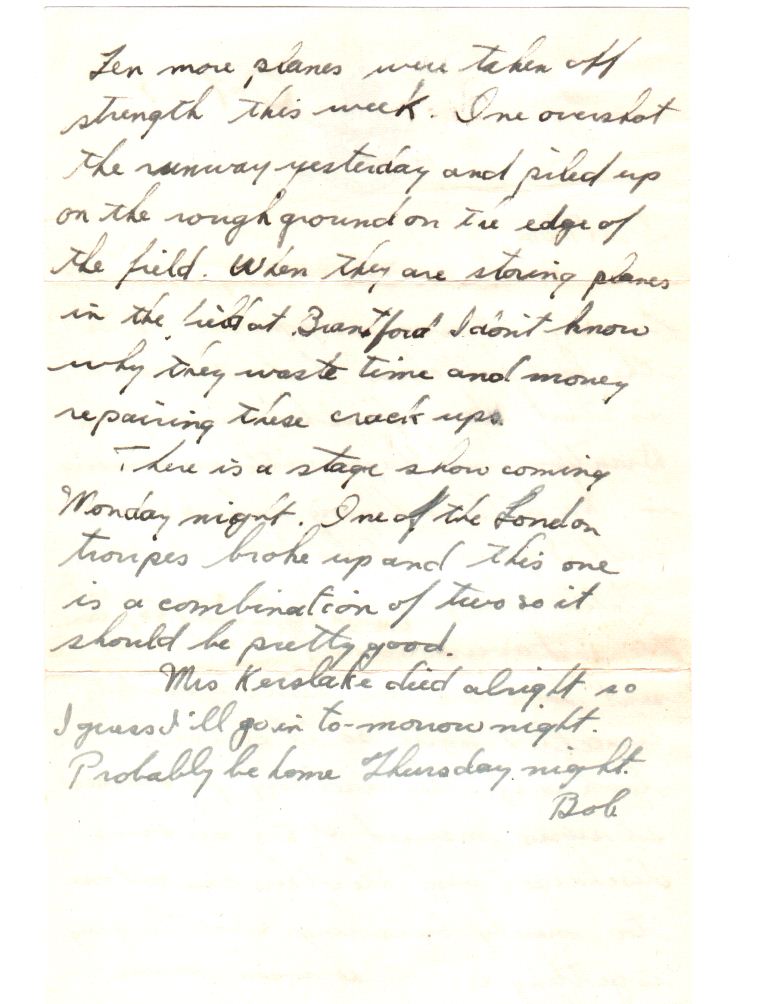 Ten more planes were taken off
strength this week. One overshot
the runway yesterday and piled up
on the rough ground on the edge of
the field. When they are storing planes
in the field at Brantford I don't know
why they waste time and money
repairing these crack ups.
There is a stage show coming
Monday night. One of the London
troupes broke up and this one
is a combination of two so it
should be pretty good.
Mrs Kerslake died alright so
I guess I'll go in to-morrow night.
Probably be home Thursday night.
Bob